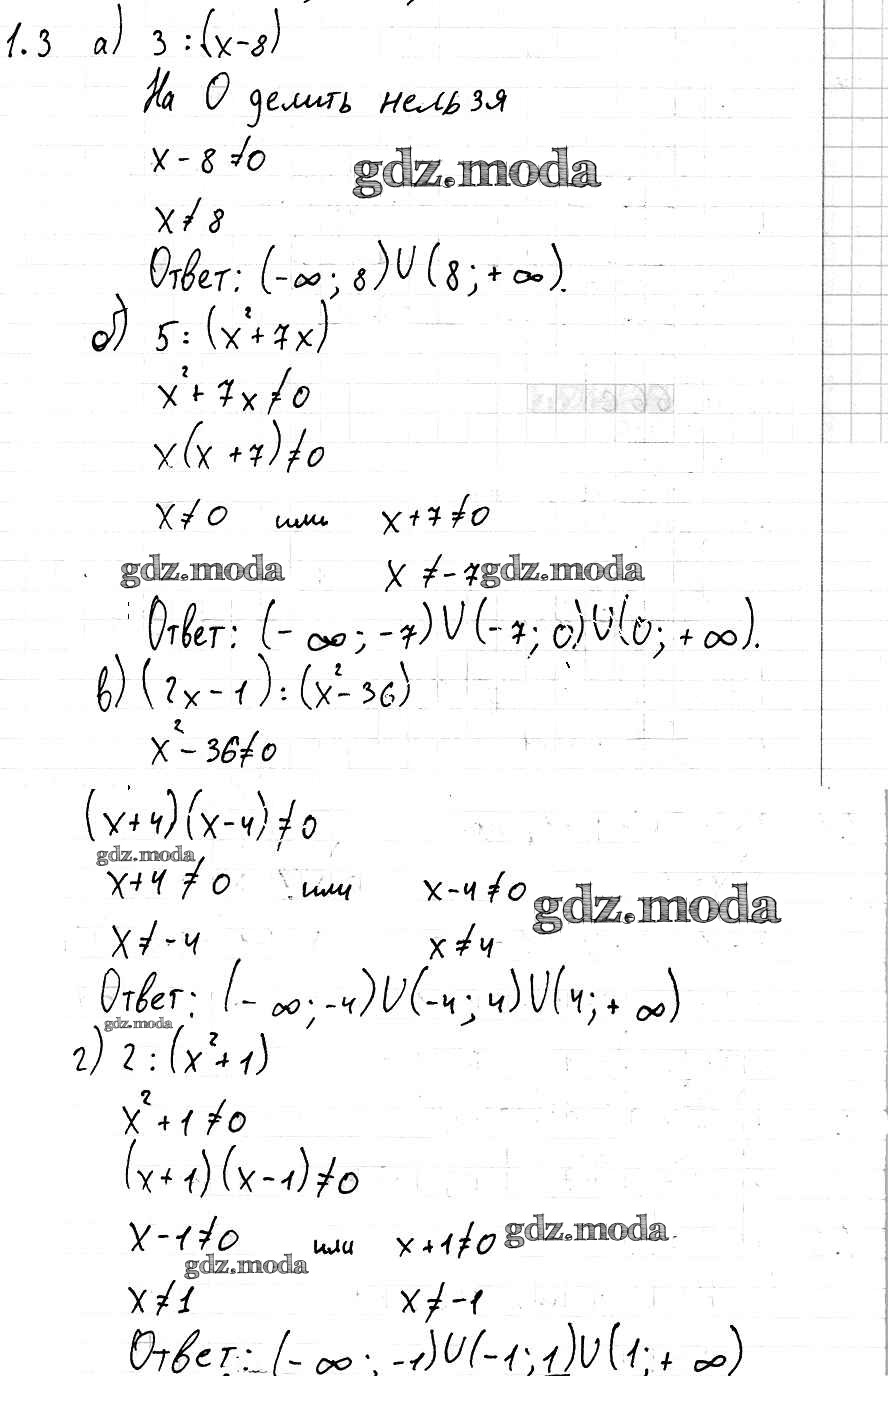 1.3 а) 3 : (x-8)
На 0 делить нельзя
x - 8 ≠ 0
gdz.moda
x ≠ 8
Ответ: (-∞; 8) ∪ (8; +∞).
б) 5 : (x² + 7x)
x² + 7x ≠ 0
x(x + 7) ≠ 0
x ≠ 0 или x + 7 ≠ 0
gdz.moda x ≠ -7 gdz.moda
Ответ: (-∞; -7) ∪ (-7; 0) ∪ (0; +∞).
в) (2x - 1) : (x² - 36)
x² - 36 ≠ 0
(x+4)(x-4) ≠ 0
gdz.moda
x+4 ≠ 0 или x-4 ≠ 0
gdz.moda
x ≠ -4 x ≠ 4
Ответ: (-∞; -4) ∪ (-4; 4) ∪ (4; +∞)
gdz.moda
г) 2 : (x² + 1)
x² + 1 ≠ 0
(x+1)(x-1) ≠ 0
x - 1 ≠ 0 или x + 1 ≠ 0 gdz.moda
gdz.moda
x ≠ 1 x ≠ -1
Ответ: (-∞; -1) ∪ (-1; 1) ∪ (1; +∞)